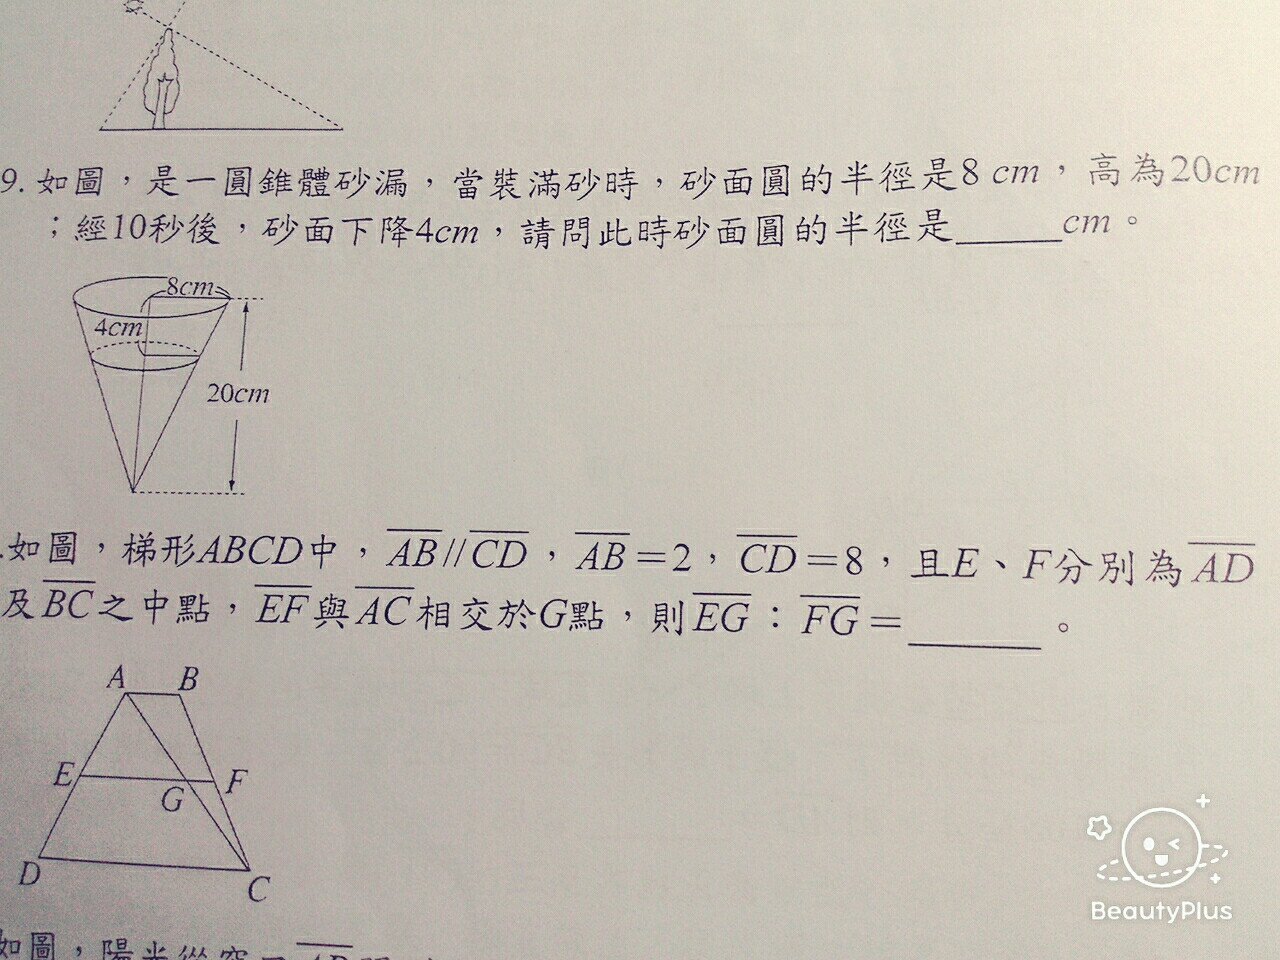 9. 如圖，是一圓錐體砂漏，當裝滿砂時，砂面圓的半徑是8 cm，高為20cm
；經10秒後，砂面下降4cm，請問此時砂面圓的半徑是______cm。
8cm
4cm
20cm
.如圖，梯形ABCD中，A̅B̅//C̅D̅，A̅B̅＝2，C̅D̅＝8，且E、F分別為A̅D̅
及B̅C̅之中點，E̅F̅與A̅C̅相交於G點，則E̅G̅：F̅G̅＝________。
A B
E G F
D C
如圖，陽光從窗
BeautyPlus